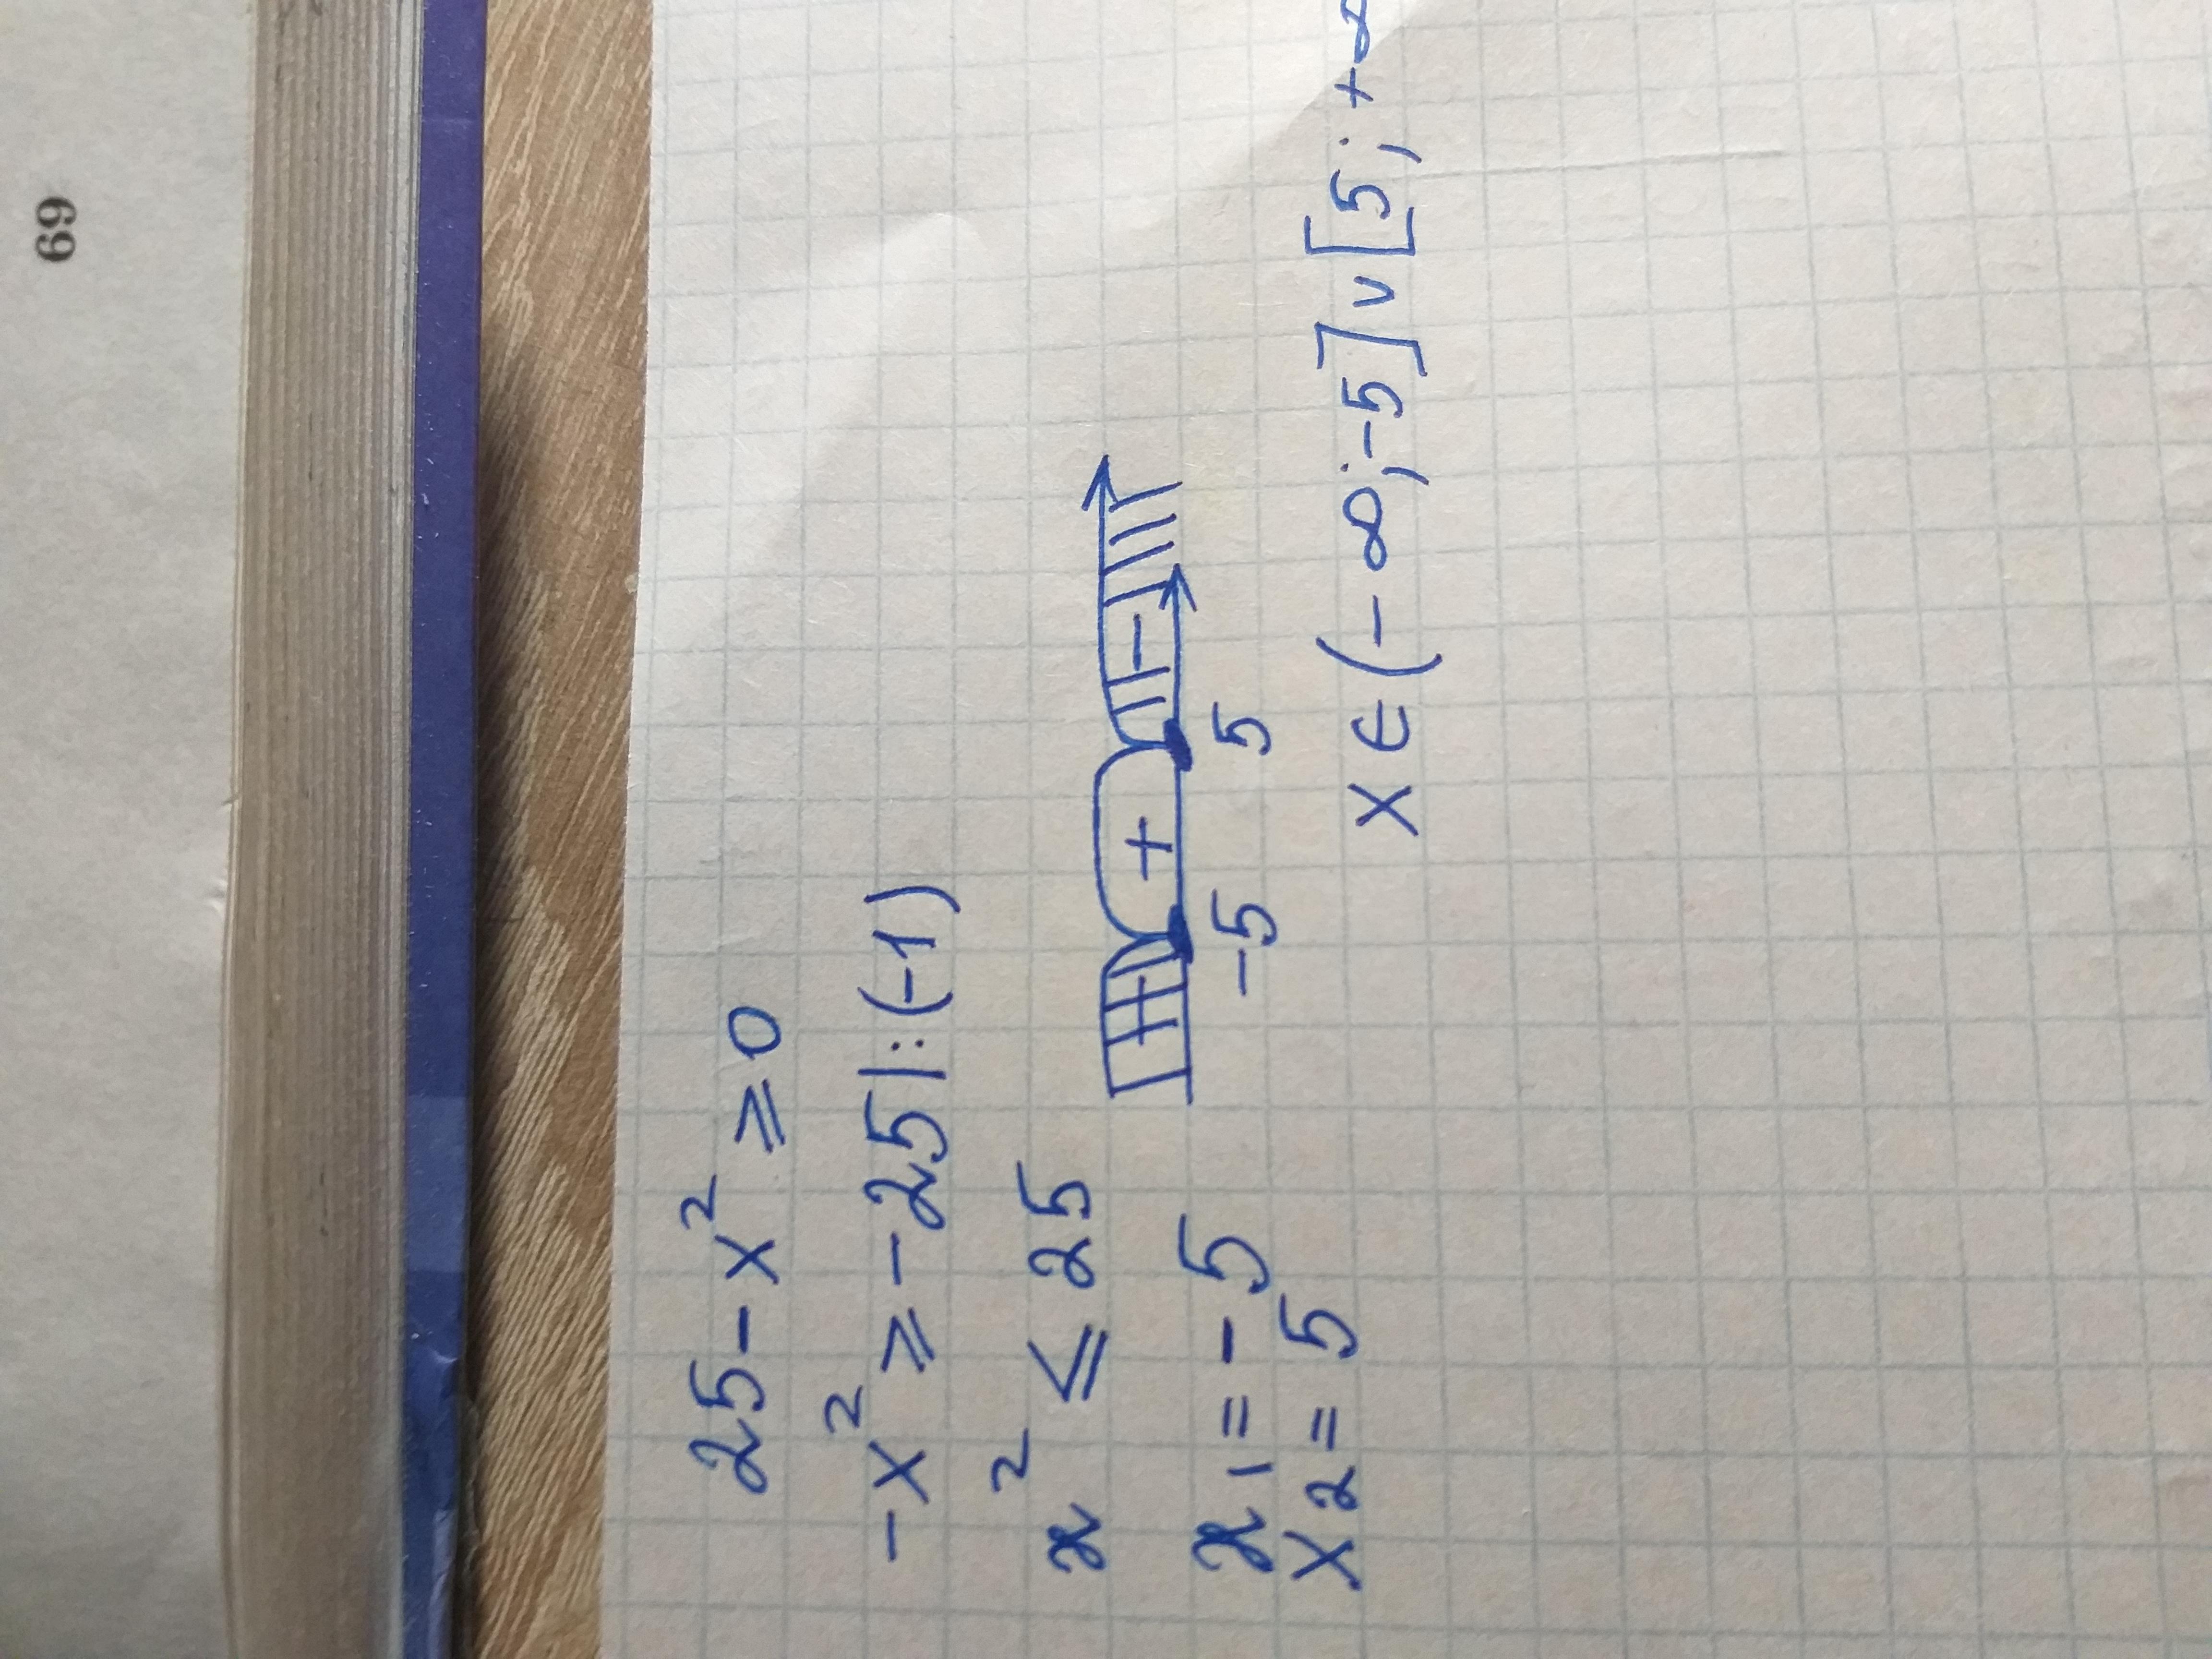 69
25-x² ⩾ 0
-x² ⩾ -25 | : (-1)
x² ⩽ 25
x₁ = -5
x₂ = 5
- + -
-5 5
x ∈ (-∞; -5] ∪ [5; +∞